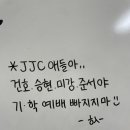 *JJC 애들아..
건호 승현 미강 준서야
기·학 예배 빠지지마!!